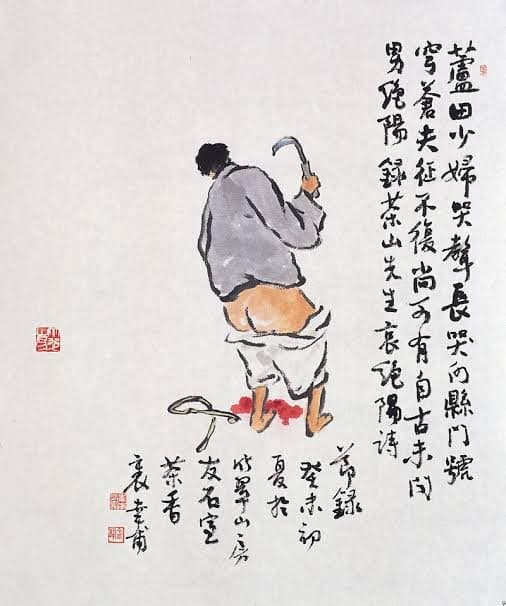 蘆田少婦哭聲長哭向縣門號
穹蒼夫征不復尚可有自古未聞
男絶陽錄茶山先生哀絶陽詩
節錄
癸未初
夏於
翠山房
友石室
茶香
裏